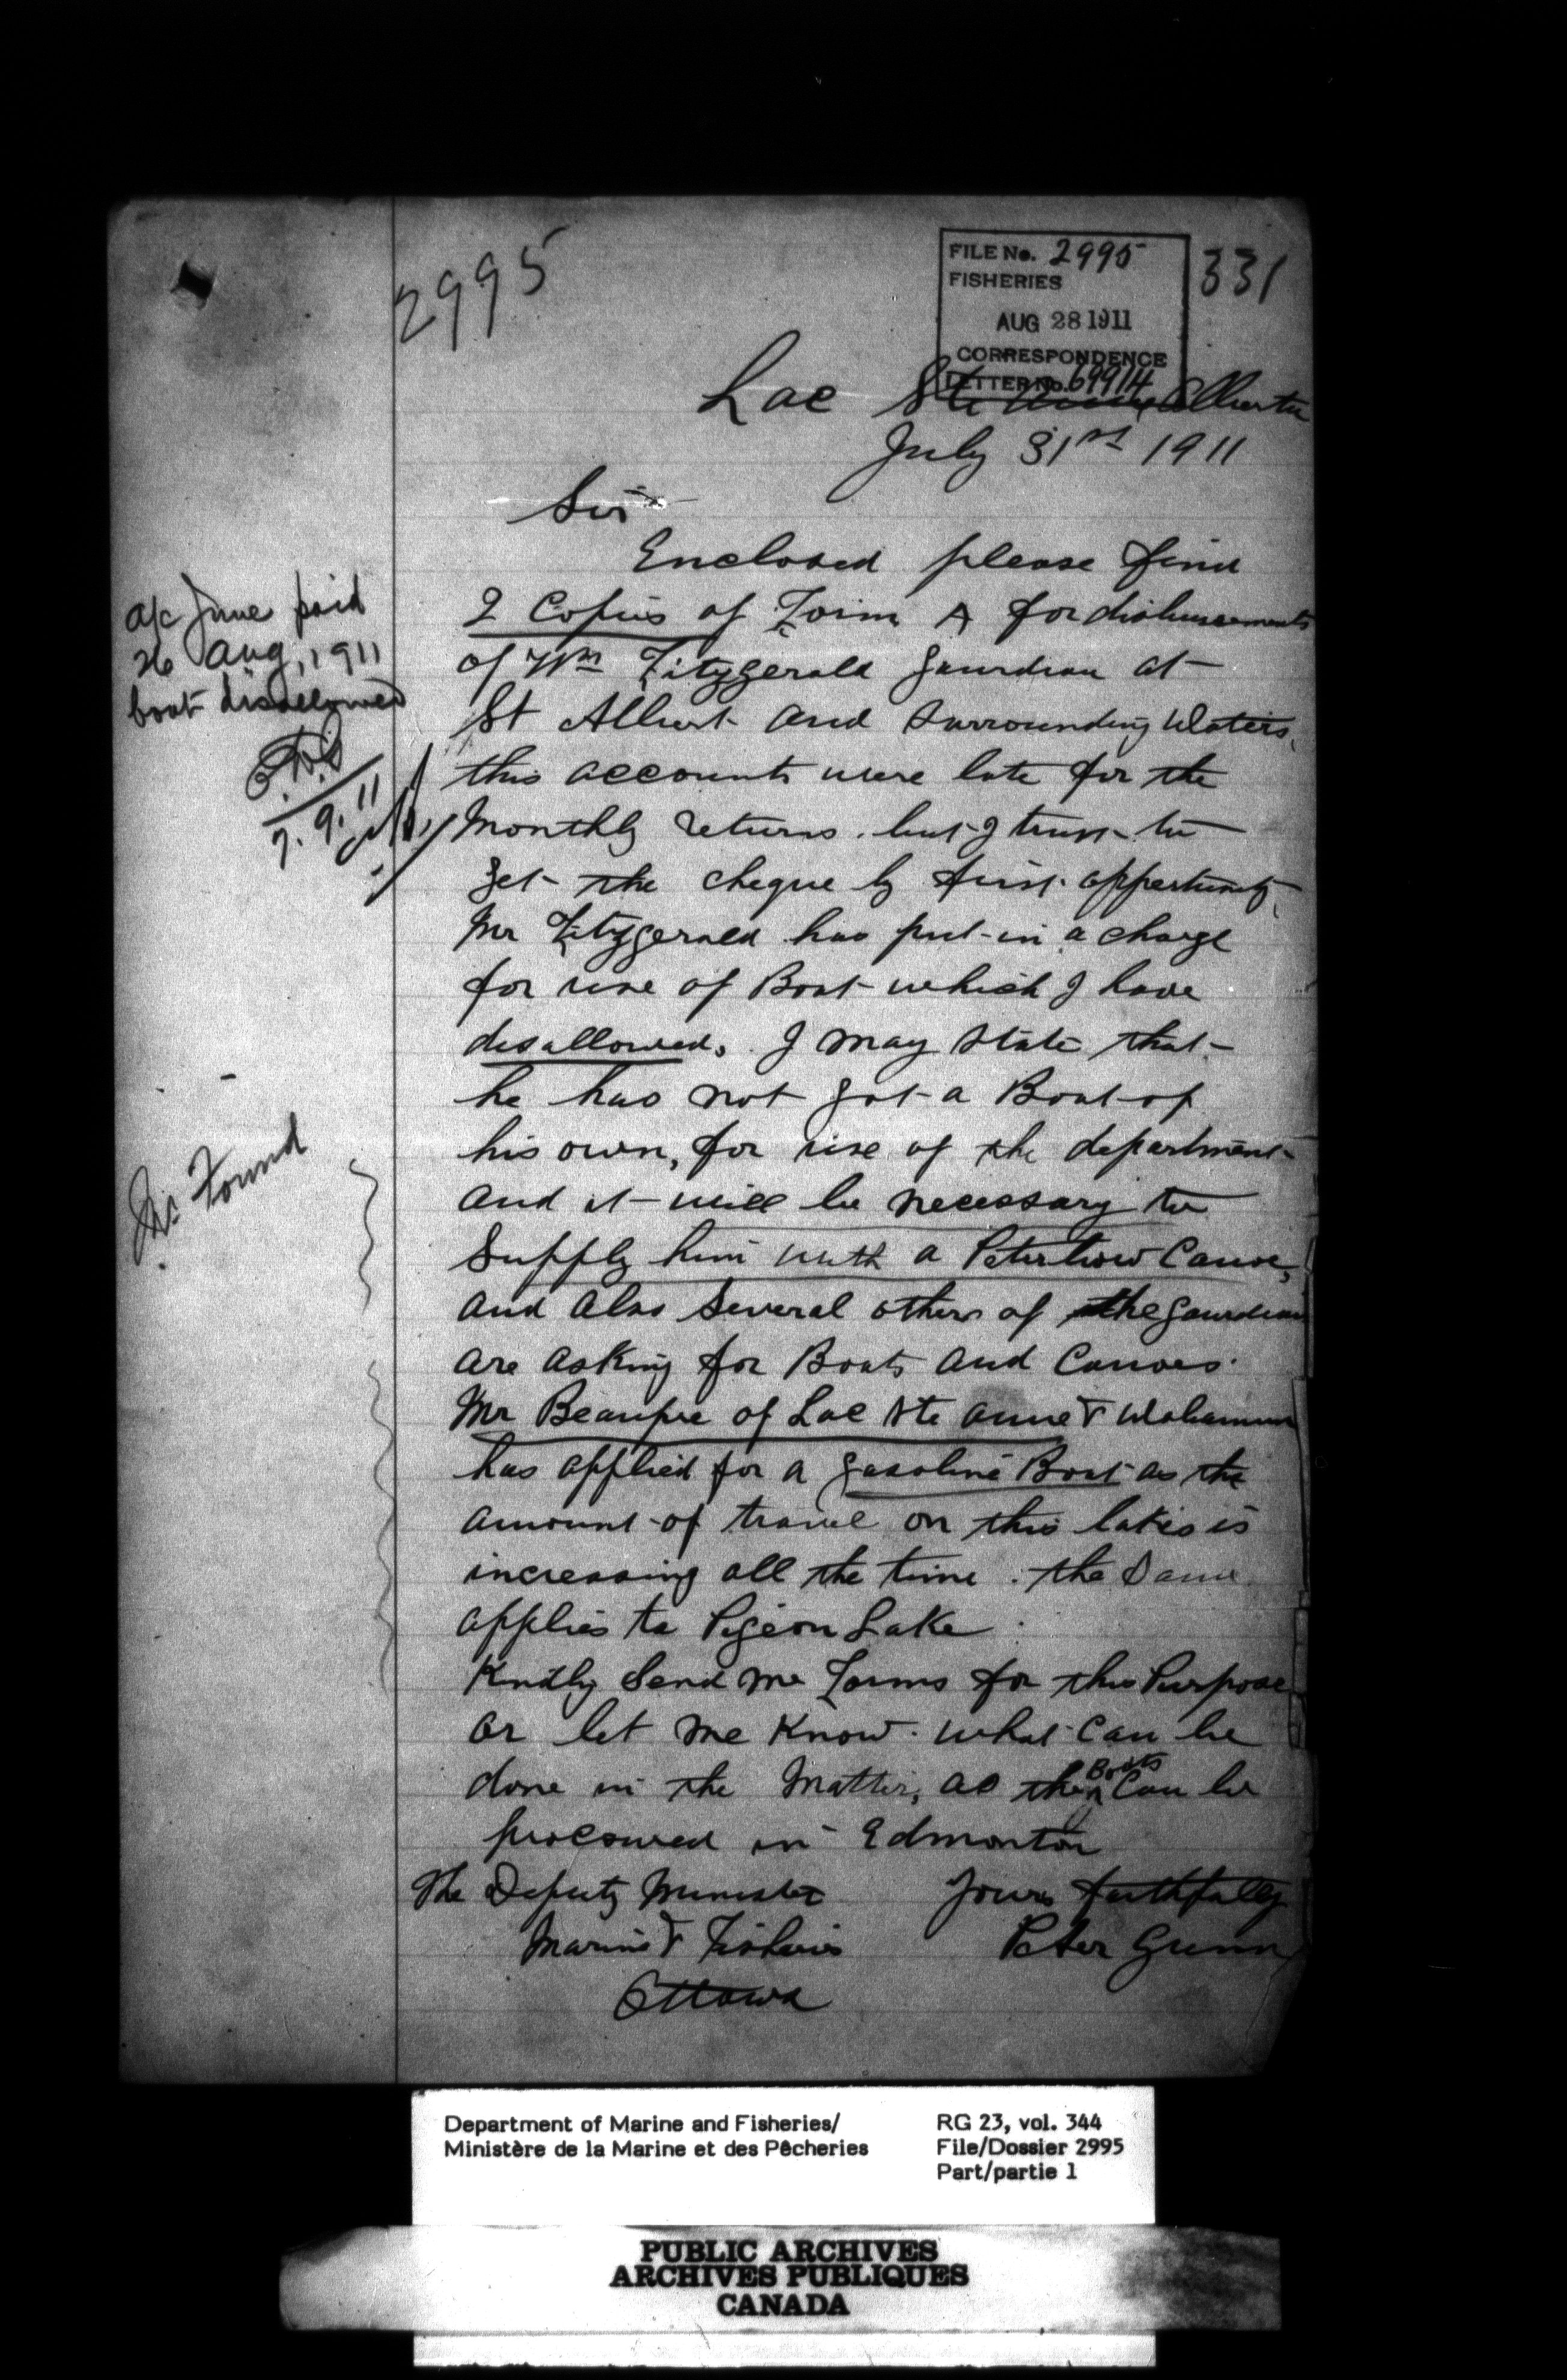 2995
FILE No. 2995
FISHERIES
AUG 28 1911
CORRESPONDENCE
LETTER No. 69914
331
Lac Ste Anne Alberta
July 31st 1911
Sir
Enclosed please find
2 Copies of Form A for disbursements
of Wm Fitzgerald gaurdian at
St Albert and surrounding Waters,
this accounts were late for the
Monthly returns. but I trust to
get the cheque by first oppertunity
Mr Fitzgerald has put in a charge
for use of Boat which I have
disallowed. I may state that
he has not got a Boat of
his own, for use of the department
and it will be necessary to
Supply him with a Peterboro Canoe,
and also several others of the gaurdians
are asking for Boats and Canoes.
Mr Beaupre of Lac Ste Anne & Wabamun
has applied for a gasoline Boat as the
amount of travel on this lakes is
increasing all the time. the same
applies to Pigeon Lake
Kindly Send me Forms for this Purpose
or let me Know. what can be
done in the Matter, as they Boats can be
procured in Edmonton
The Deputy Minister
Marine & Fisheries
Ottawa
Yours faithfully
Peter Gunn
a/c June paid
26 Aug, 1911
boat disallowed
7.9.11
Mr Found
Department of Marine and Fisheries/
Ministère de la Marine et des Pêcheries
RG 23, vol. 344
File/Dossier 2995
Part/partie 1
PUBLIC ARCHIVES
ARCHIVES PUBLIQUES
CANADA